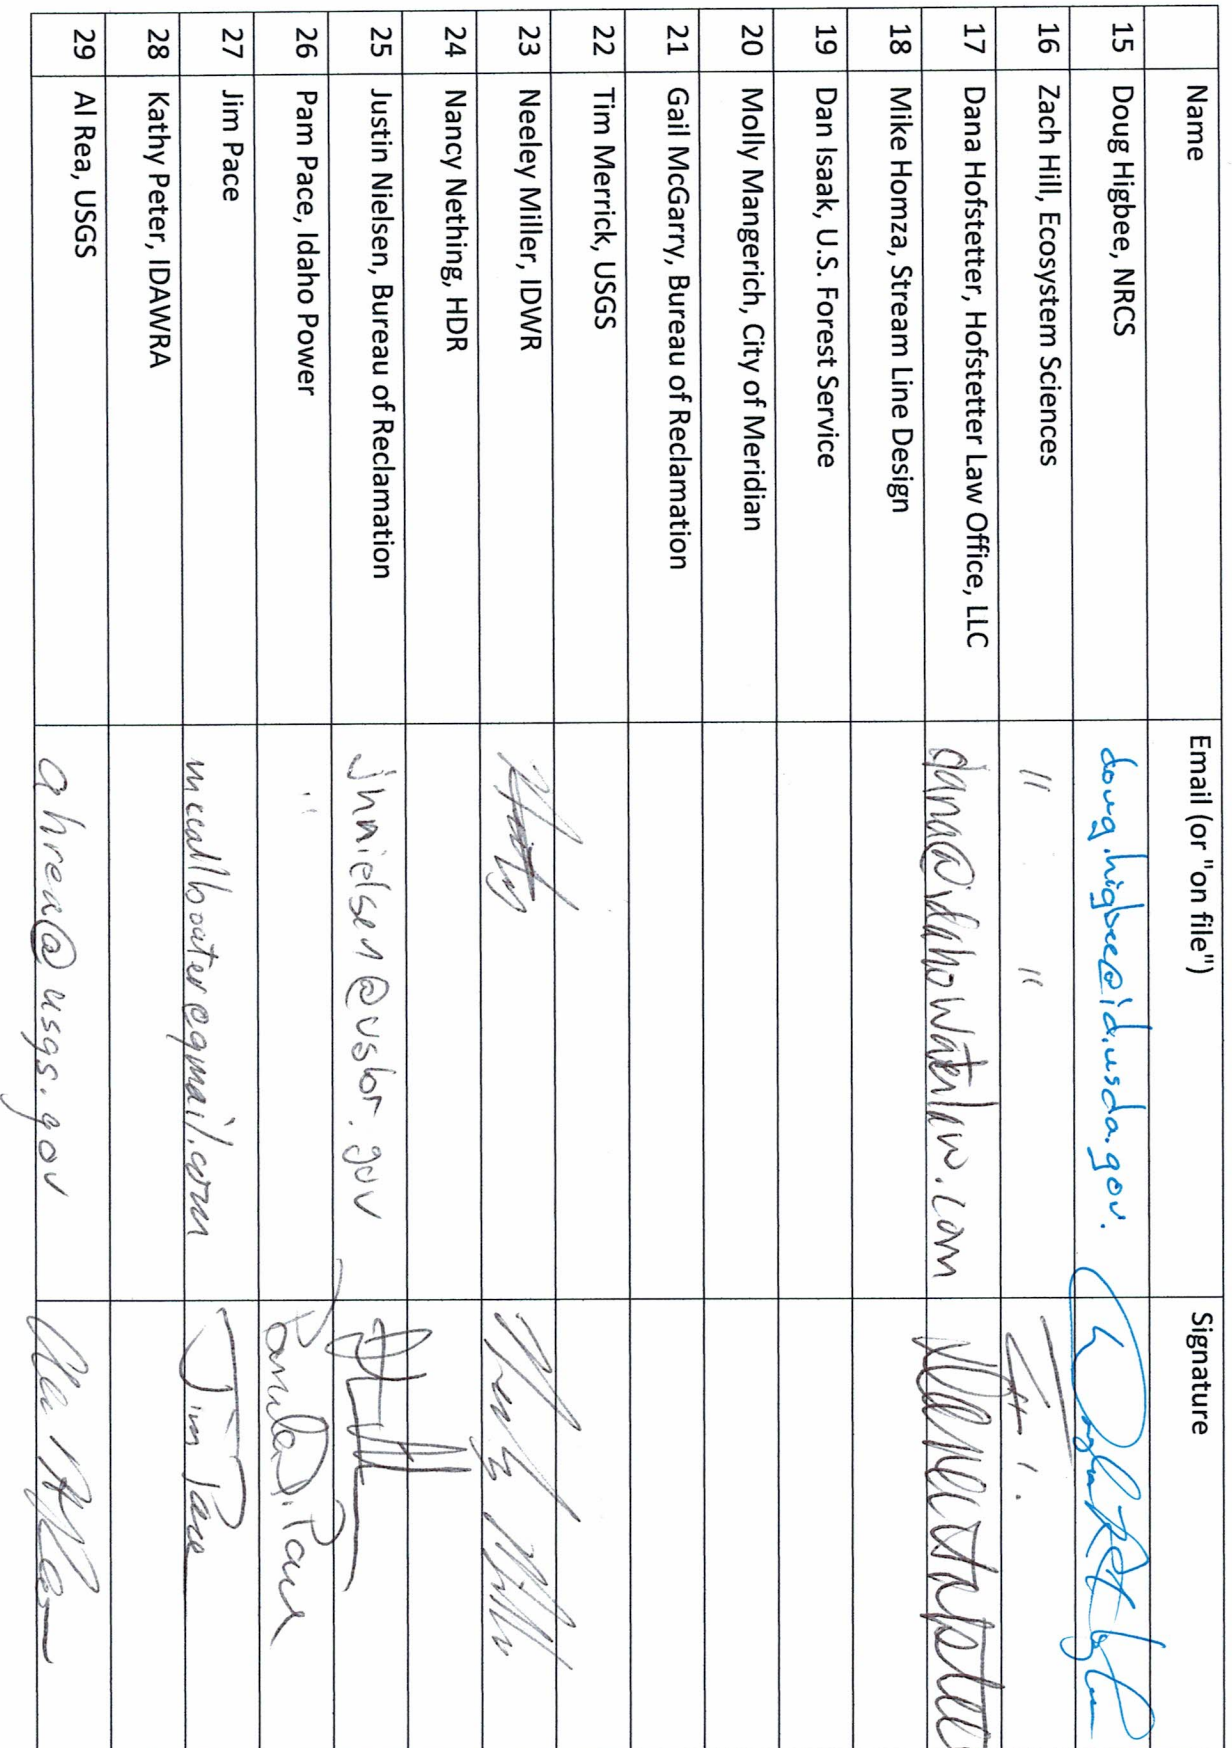 Name Email (or "on file") Signature
15 Doug Higbee, NRCS doug.higbee@id.usda.gov.
16 Zach Hill, Ecosystem Sciences " "
17 Dana Hofstetter, Hofstetter Law Office, LLC dana@idahowaterlaw.com
18 Mike Homza, Stream Line Design
19 Dan Isaak, U.S. Forest Service
20 Molly Mangerich, City of Meridian
21 Gail McGarry, Bureau of Reclamation
22 Tim Merrick, USGS
23 Neeley Miller, IDWR
24 Nancy Nething, HDR
25 Justin Nielsen, Bureau of Reclamation jhnielsen@usbr.gov
26 Pam Pace, Idaho Power " Pamela Pace
27 Jim Pace mccallboater@gmail.com Jim Pace
28 Kathy Peter, IDAWRA
29 Al Rea, USGS ahrea@usgs.gov